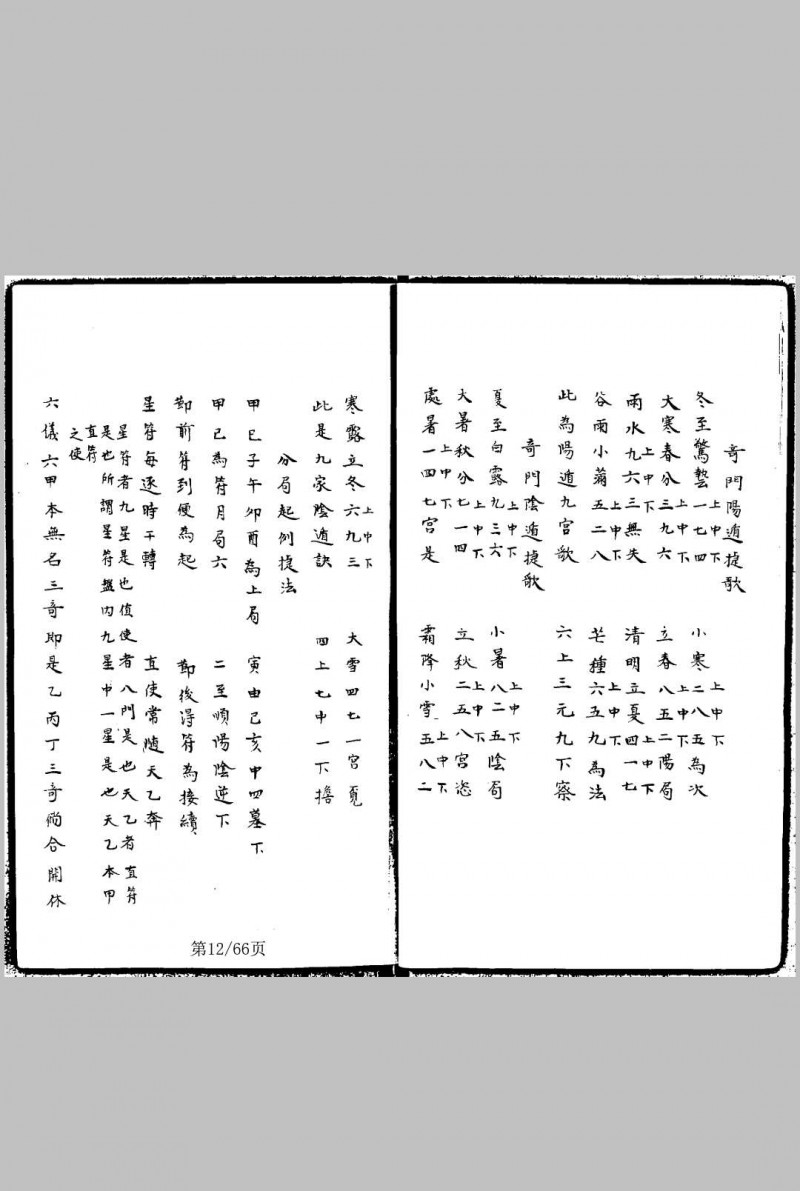 奇門陽遁捷歌
冬至驚蟄一七四 上中下 小寒二八五為次 上中下
大寒春分三九六 上中下 立春八五二陽局
雨水九六三無失 上中下 清明立夏四一七 上中下
谷雨小蒲五二八 上中下 芒種六五九為法 上中下
此為陽遁九宮歌 六上三元九下察
奇門陰遁捷歌
夏至白露九三六 上中下 小暑八二五陰局 上中下
大暑秋分七一四 上中下 立秋二五八宮恣 上中下
處暑一四七宮是 上中下 霜降小雪五八二 上中下
寒露立冬六九三 上中下 大雪四七一宮覓
此是九家陰遁訣 四上七中一下擔
分局起例捷法
甲巳子午卯酉為上局 寅由己亥中四墓下
甲己為符月局六 二至順陽陰逆下
節前符到便為起 節後得符為接續
星符每逐時干轉 直使常随天乙奔
星符者九星是也值使者八門是也天乙者直符
是也所謂星符盤內九星中一星是也天乙本甲
直符
之使
六儀六甲本無名三奇即是乙丙丁三奇倘合開休
第12/66页